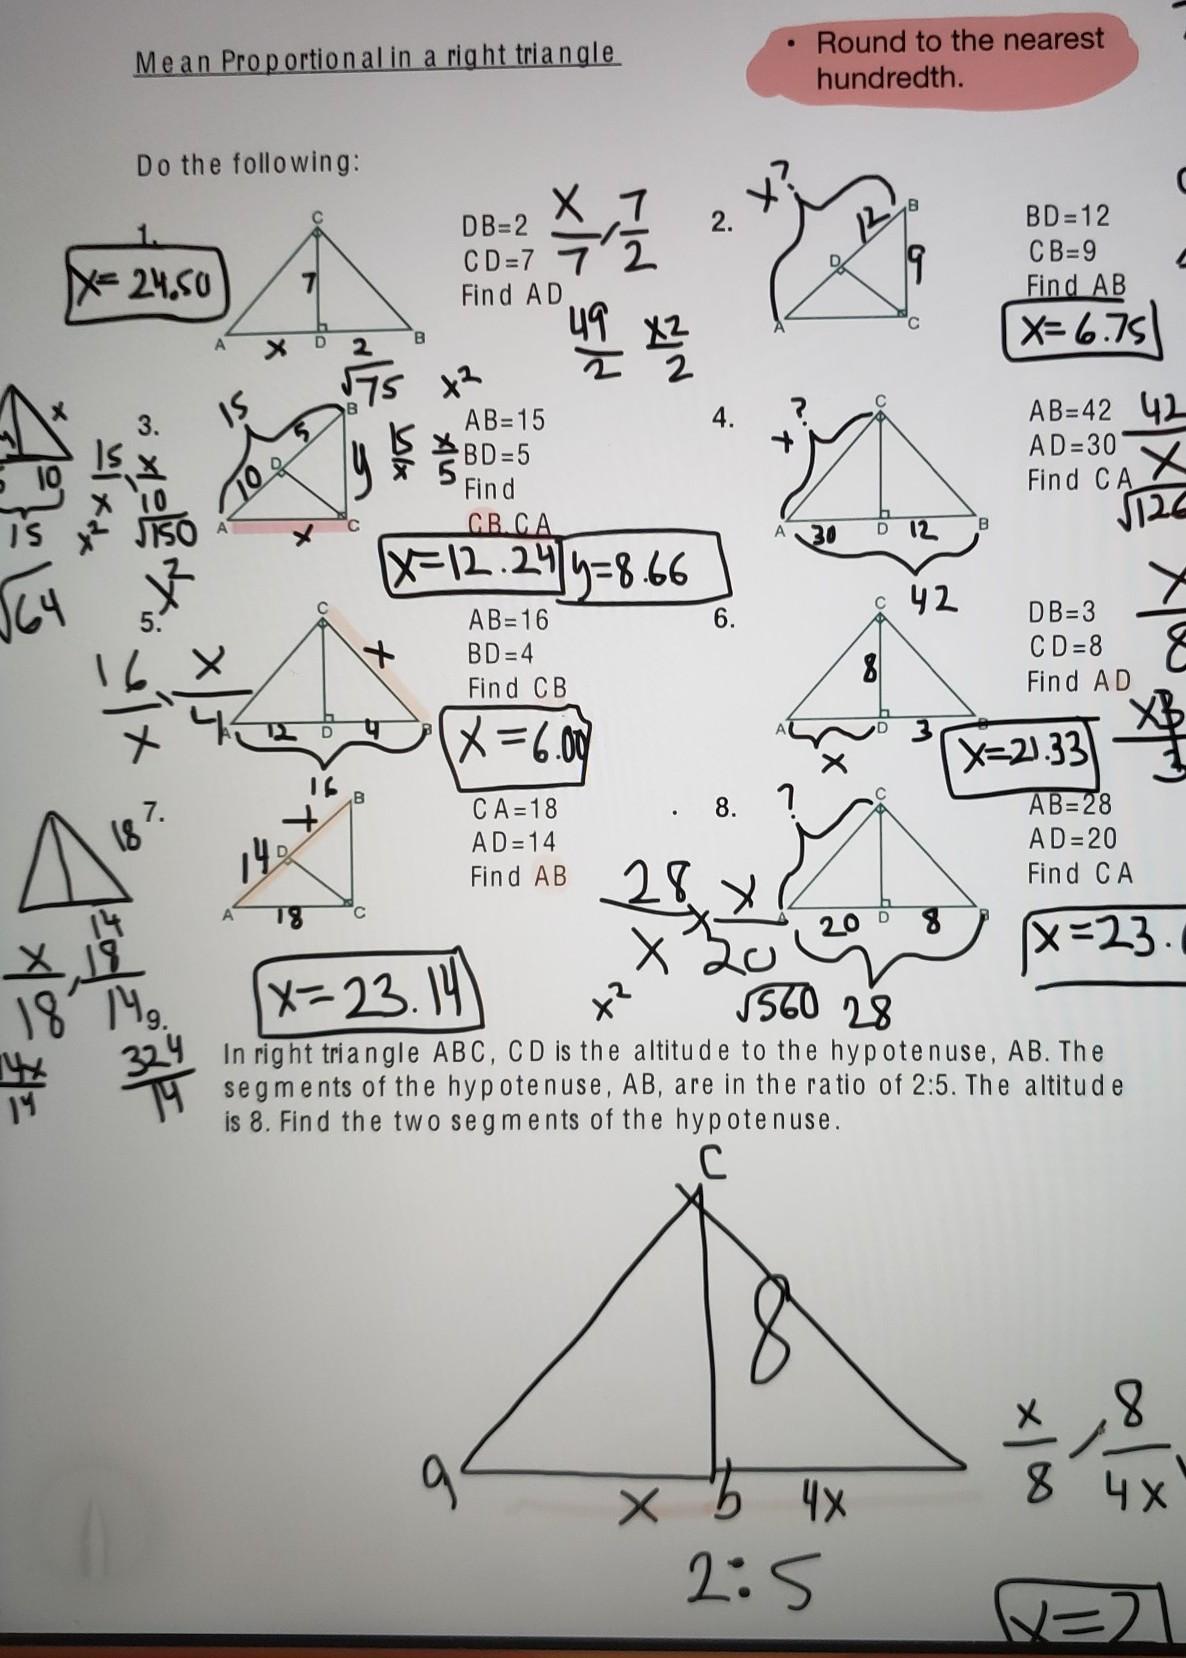 Mean Proportional in a right triangle
• Round to the nearest
hundredth.
Do the following:
1.
x=24.50
C
7
A x D 2 B
DB=2
CD=7
Find AD
x/7 7/2
49/2 x2/2
2.
x?
12
B
D
9
A
C
BD=12
CB=9
Find AB
x=6.75
3.
x
10
15
15/x x/10
x² √150
15
B
5
D
10
y
A x C
√75 x²
15/x x/5
AB=15
BD=5
Find
CB, CA
x=12.24 y=8.66
4.
?
x
C
A 30 D 12 B
42
AB=42
AD=30
Find CA
42
x
√126
√64 x²
5.
16/x x/4
C
x
A 12 D 4 B
16
AB=16
BD=4
Find CB
x=6.00
6.
C
8
A D 3
x
DB=3
CD=8
Find AD
x
8
x=21.33
7.
18
14
x/18 18/14
14x/14 324/14
B
x
14 D
A 18 C
CA=18
AD=14
Find AB
x=23.14
8.
?
C
A 20 D 8 B
28
28/x x/20
x² √560
AB=28
AD=20
Find CA
x=23.
9.
In right triangle ABC, CD is the altitude to the hypotenuse, AB. The
segments of the hypotenuse, AB, are in the ratio of 2:5. The altitude
is 8. Find the two segments of the hypotenuse.
C
8
a x b 4x
2:5
x/8 8/4x